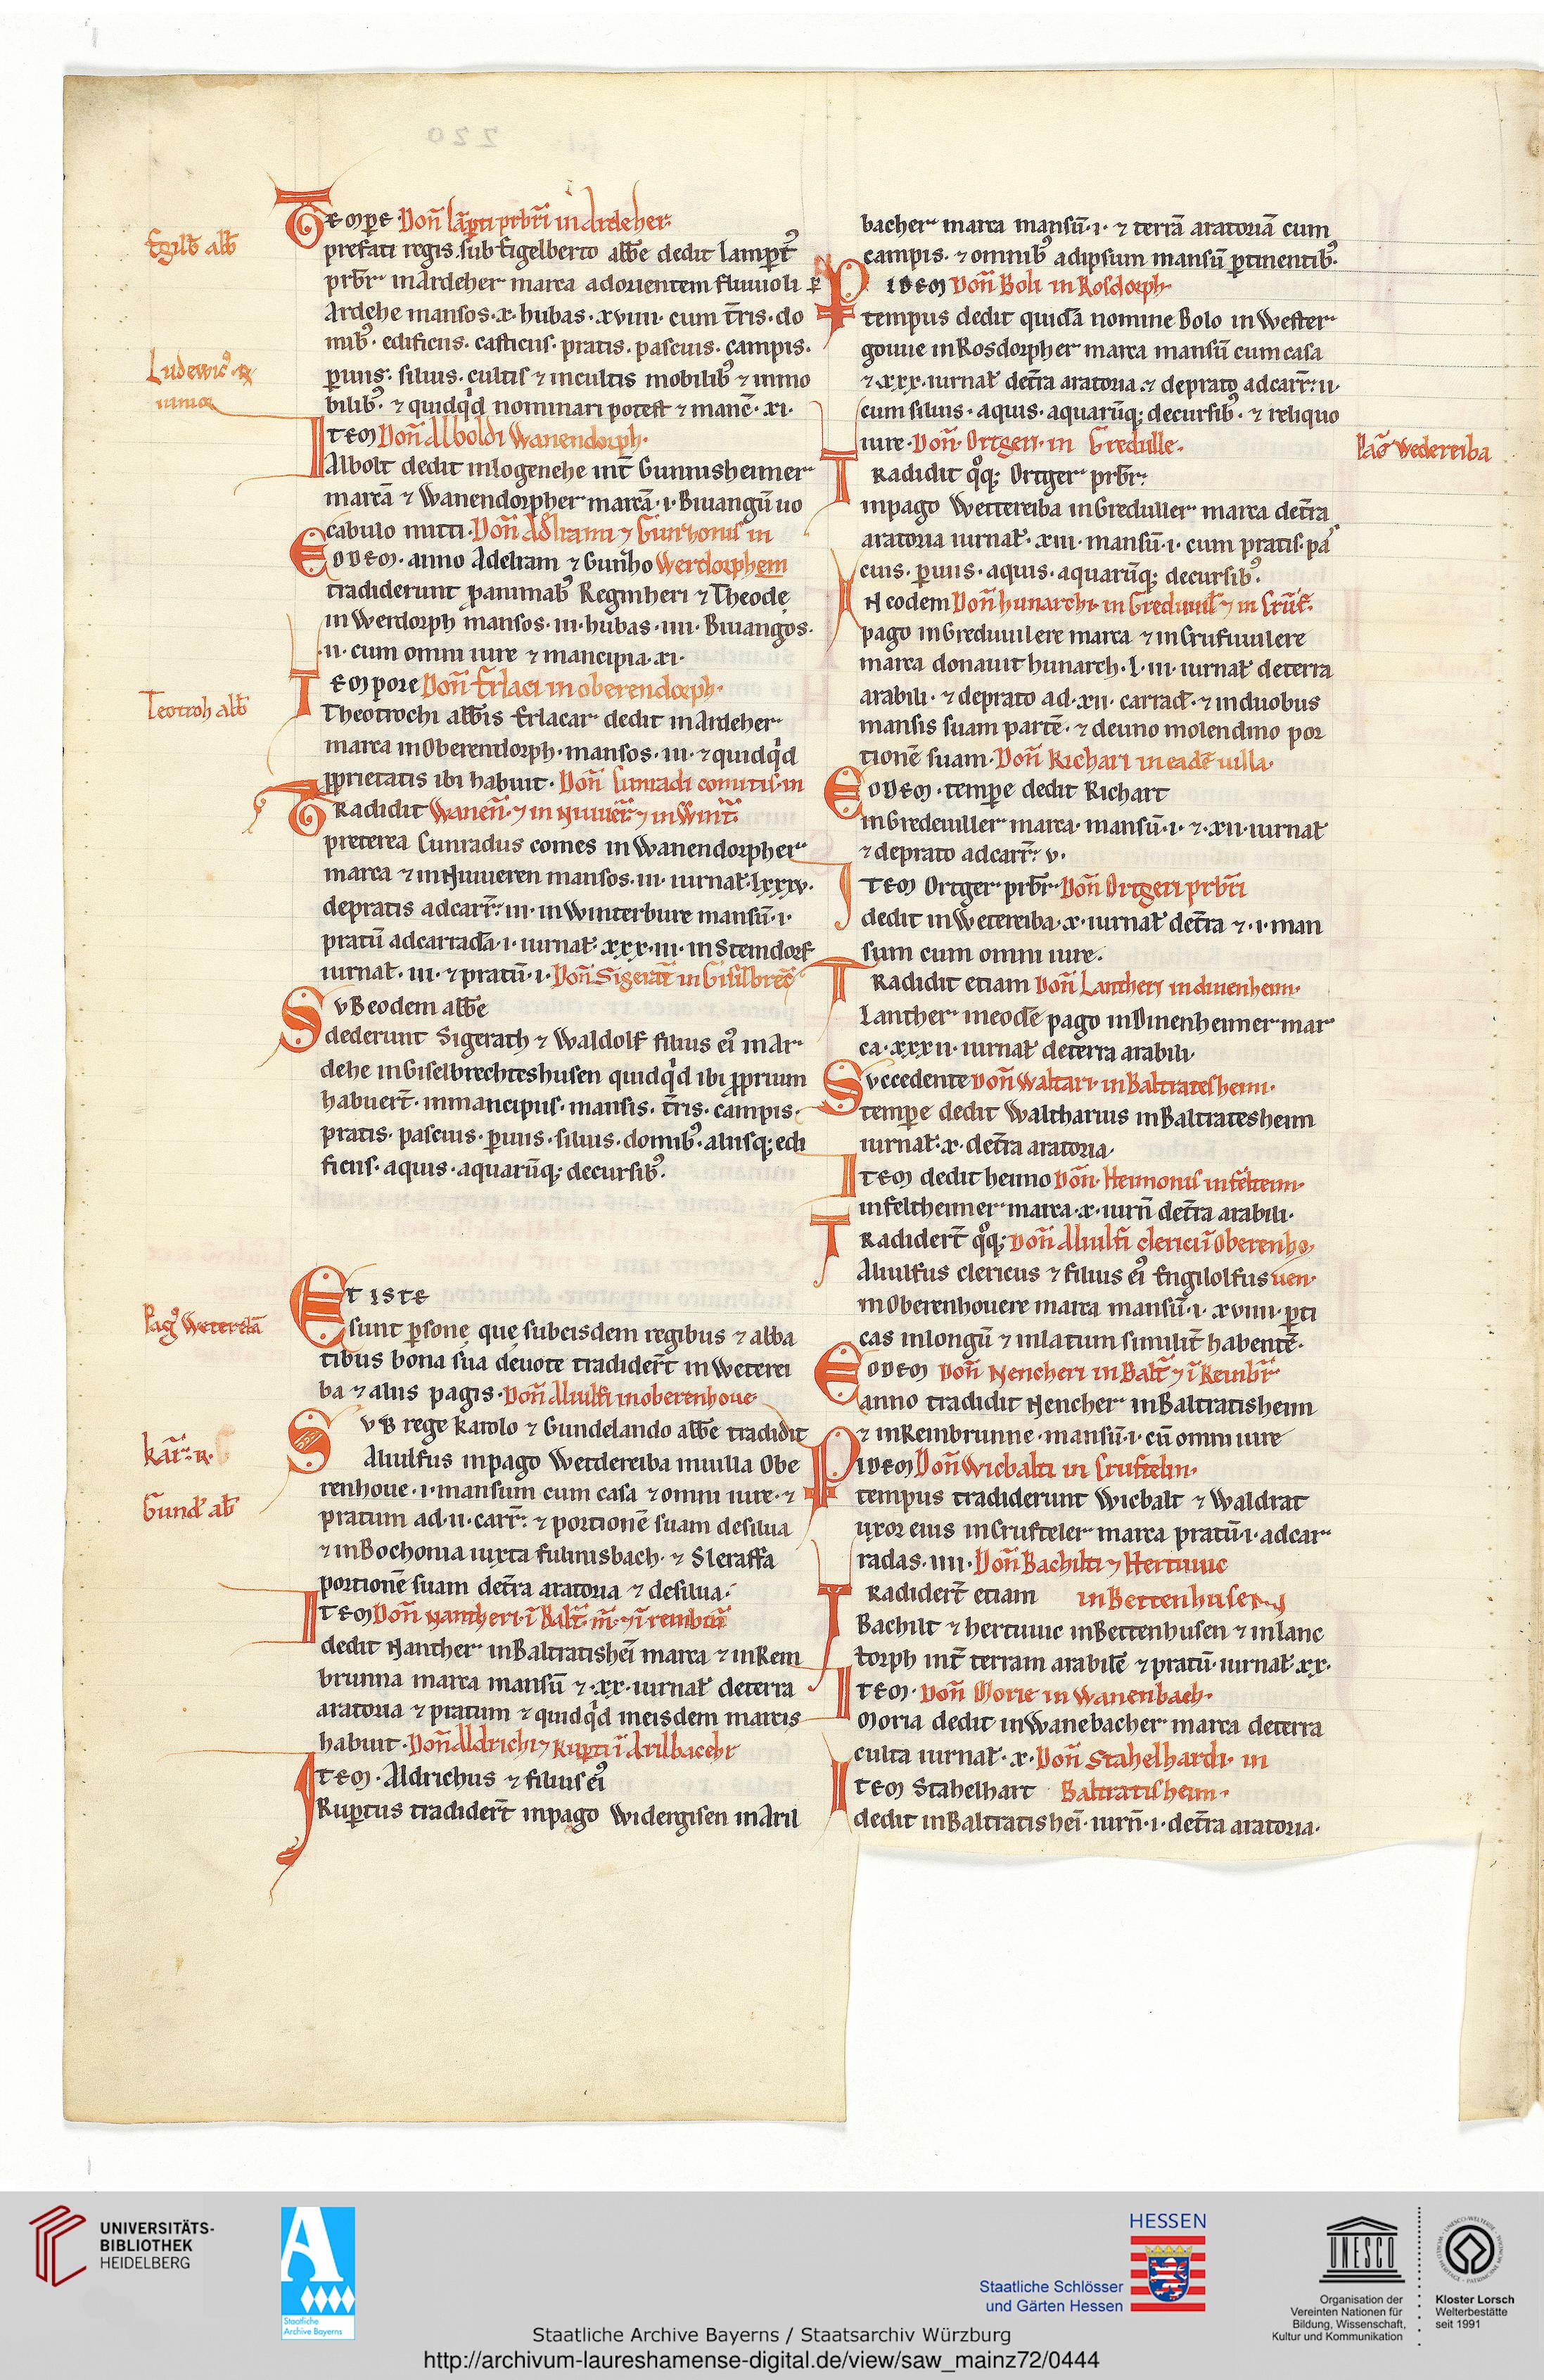 Tempe Don̄ Lāpti prbri in Ardeher.
Egilb abb
prefati regis. sub Eigelberto abbe dedit Lampt᷒
prbr in Ardeher marca ad orientem fluuioli
Ardehe mansos .x. hubas .xviiii. cum tr̄is. do
mib᷒. edificiis. casticiis. pratis. pascuis. campis.
Ludewic᷒ R
iunior
puiis. siluis. cultis ⁊ incultis mobilib᷒ ⁊ inmo
bilib᷒. ⁊ quidqd nominari potest ⁊ manc̄. xi.
Item Don̄ Alboldi Wanendorph.
Albolt dedit in Logenehe int̄ Gunnisheimer
marcā ⁊ Wanendorpher marcā .i. Biuangū uo
cabulo mitti. Don̄ Adhrami ⁊ Gunthonis in
Eodem. anno Adelram ⁊ Guntho Werdorphem
tradiderunt p animab᷒ Reginheri ⁊ Theode
in Werdorph mansos .iii. hubas .iiii. Biuangos.
.ii. cum omni iure ⁊ mancipia .xi.
Tempore Don̄ Erlaci in Oberendorph.
Teotroh abb
Theotrochi abbis Erlacar dedit in Ardeher
marca in Oberendorph. mansos .iii. ⁊ quidqd
pprietatis ibi habuit. Don̄ Cunradi comitis. in
Tradidit Wanen̄. ⁊ in Niuuer̄ ⁊ in Wint̄.
preterea Cunradus comes in Wanendorpher
marca ⁊ in Niuueren mansos .iii. iurnal. lxxxv.
de pratis ad carr̄. iii. in Winterbure mansū .i.
pratū ad carradā .i. iurnal. xxx.iii. in Steindorf
iurnal. iii. ⁊ pratū .i. Don̄ Sigerat in Gisilbrec̄
Sub eodem abbe
dederunt Sigerath ⁊ Waldolf filius ei᷒ in Ar
dehe in Giselbrechteshusen quidqd ibi pprium
habuer̄t. in mancipiis. mansis. tr̄is. campis.
pratis. pascuis. puiis. siluis. domib᷒. aliisq; edi
ficiis. aquis. aquarūq; decursib᷒.
Et iste
Pag᷒ Wetereiā
sunt psone que sub eisdem regibus ⁊ abba
tibus bona sua deuote tradider̄t in Weterei
ba ⁊ aliis pagis. Don̄ Aluulfi in Oberenhoue
Sub rege Karolo ⁊ Gundelando abbe tradidit
Kar̄. R.
Aluulfus in pago Wetdereiba in uilla Obe
renhoue .i. mansum cum casa ⁊ omni iure. ⁊
Gund ab
pratum ad .ii. carr̄. ⁊ portionē suam de silua
⁊ in Bochonia iuxta Fulinisbach. ⁊ Sleraffa
portionē suam de tr̄a aratoria ⁊ de silua.
Item Don̄ Nantheri. ī Balt. m̄. ⁊ ī Reinbrū
dedit Nanther in Baltratishei marca ⁊ in Rein
brunna marca mansū ⁊ .xx. iurnal de terra
aratoria ⁊ pratum ⁊ quidqd in eisdem marcis
habuit. Don̄ Aldrichi ⁊ Rupti ī Arilbacehr
Item. Aldrichus ⁊ filius ei᷒
Ruptus tradider̄t in pago Widergisen in Aril
bacher marca mansū .i. ⁊ terrā aratoriā cum
campis. ⁊ omnib᷒ ad ipsum mansū ptinentib᷒.
P idem Don̄ Boli in Rosdorph
tempus dedit quidā nomine Bolo in Wetter
gouue in Rosdorpher marca mansū cum casa
⁊ .xxx. iurnal de tr̄a aratoria ⁊ de prato ad carr̄. ii.
cum siluis. aquis. aquarūq; decursib᷒. ⁊ reliquo
iure. Don̄. Ortgeri. in Gredulle.
Pag̊ Wedereiba
Tradidit qq; Ortger prbr.
in pago Wettereiba in Greduller marca de tr̄a
aratoria iurnal. xiii. mansū .i. cum pratis. pa
cuis. puiis. aquis. aquarūq; decursib᷒.
In eodem Don̄ Hunarchi. in Greduuil ⁊ in Cruf.
pago in Greduuilere marca ⁊ in Crufuuilere
marca donauit Hunarch. l.iii. iurnal de terra
arabili. ⁊ de prato ad .xii. carrad. ⁊ in duobus
mansis suam partē. ⁊ de uno molendino por
tionē suam. Don̄ Richari in eadē uilla.
Eodem. tempe dedit Richart
in Gredeuiller marca. mansū .i. ⁊ .xii. iurnal
⁊ de prato ad carr̄. v.
Item Ortger prbr. Don̄ Ortgeri prbri
dedit in Wetereiba .x. iurnal de tr̄a ⁊ .i. man
sum cum omni iure.
Tradidit etiam Don̄ Lantheri in Dinenheim.
Lanther in eodē pago in Dinenheimer mar
ca .xxxii. iurnal de terra arabili.
Succedente Don̄ Waltari. in Baltratesheim.
tempe dedit Waltharius in Baltratesheim
iurnal .x. de tr̄a aratoria.
Item dedit Heimo Don̄. Heimonis in Felheim.
in Feltheimer marca .x. iurn̄ de tr̄a arabili.
Tradider̄t qq; Don̄ Aluulfi clerici ī Oberenho
Aluulfus clericus ⁊ filius ei᷒ Engilolfus uen.
in Oberenhouere marca mansū .i. xviiii. pti
cas in longū ⁊ in latum similit̄ habentē.
Eodem Don̄ Nencheri in Balt̄ ⁊ ī Reinbr̄
anno tradidit Nencher in Baltratisheim
⁊ in Reinbrunne. mansū .i. cū omni iure
P idem Don̄ Wicbalti in Cruftelin.
tempus tradiderunt Wicbalt ⁊ Waldrat
uxor eius in Crufteler marca pratū .i. ad car
radas .iiii. Don̄ Bachilti ⁊ Hertuuic
Tradider̄t etiam in Bettenhusen
Bachilt ⁊ Hertuuic in Bettenhusen ⁊ in Lanc
torph int̄ terram arabilē ⁊ pratū. iurnal. xx.
Item. Don̄ Morie in Wanenbach.
Moria dedit in Wanebacher marca de terra
culta iurnal. x. Don̄ Stahelhardi. in
Item Stahelhart Baltratisheim.
dedit in Baltratishei. iurn̄. i. de tr̄a aratoria.
UNIVERSITÄTS-
BIBLIOTHEK
HEIDELBERG
Staatliche
Archive Bayerns
HESSEN
Staatliche Schlösser
und Gärten Hessen
UNESCO
Organisation der
Vereinten Nationen für
Bildung, Wissenschaft,
Kultur und Kommunikation
Kloster Lorsch
Welterbestätte
seit 1991
Staatliche Archive Bayerns / Staatsarchiv Würzburg
http://archivum-laureshamense-digital.de/view/saw_mainz72/0444